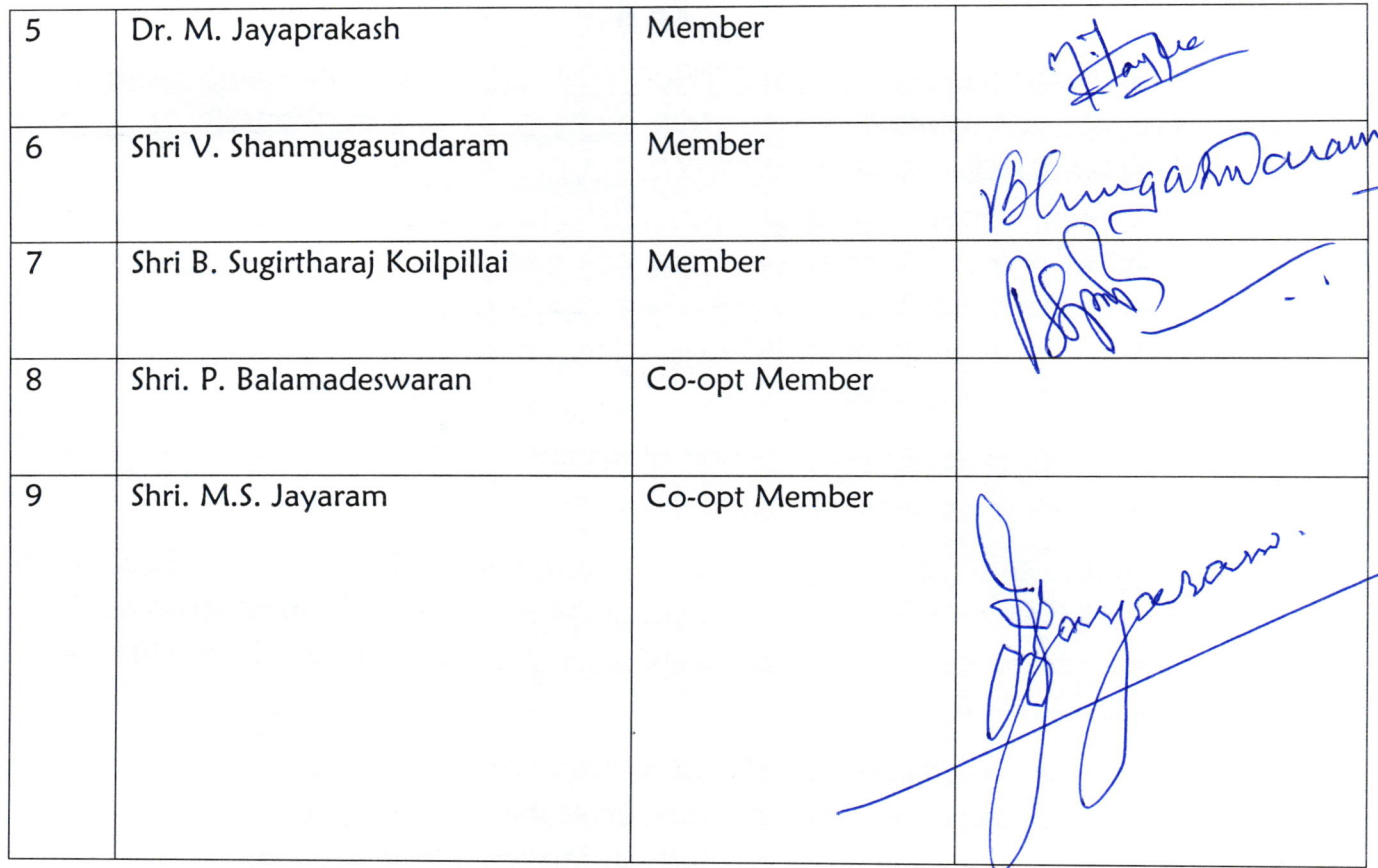 5 Dr. M. Jayaprakash Member
6 Shri V. Shanmugasundaram Member
7 Shri B. Sugirtharaj Koilpillai Member
8 Shri. P. Balamadeswaran Co-opt Member
9 Shri. M.S. Jayaram Co-opt Member